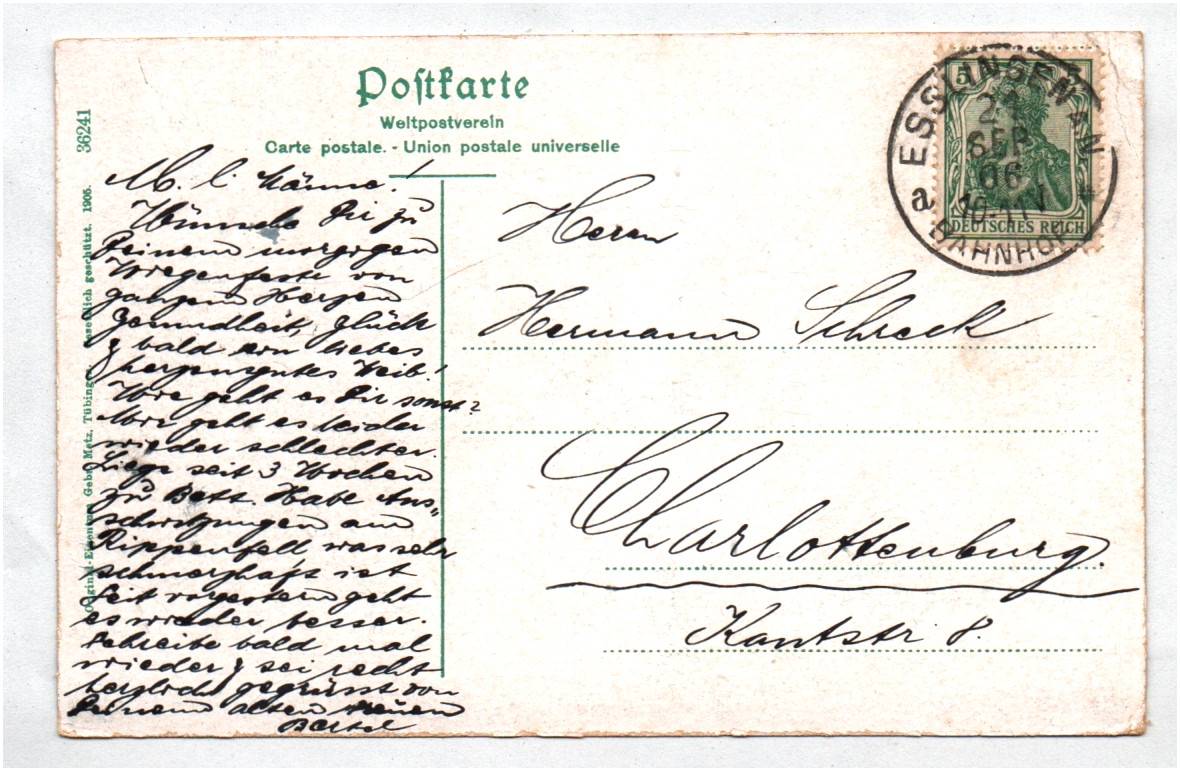 Postkarte
Weltpostverein
Carte postale. - Union postale universelle
36241
Original-Eigentum Gebr. Metz, Tübingen. Gesetzlich geschützt. 1905.
5 5
DEUTSCHES REICH
ESSLINGEN A N
SEP
06
10-11 V
a *
BAHNHOF
M. l. Männe!
Wünsche Dir zu
Deinem morgigen
Wiegenfeste von
ganzem Herzen
Gesundheit, Glück
& bald ein liebes
herzensgutes Weib!
Wie geht es Dir sonst?
Mir geht es leider
wieder schlechter.
Liege seit 3 Wochen
zu Bett. Habe Aus„
schwitzungen am
Rippenfell was sehr
schmerzhaft ist
Seit vorgestern geht
es wieder besser.
Schreibe bald mal
wieder & sei recht
herzlich gegrüsst von
Deinem alten treuen
Bertel
Herrn
Hermann Schreck
Charlottenburg.
Kantstr 8.